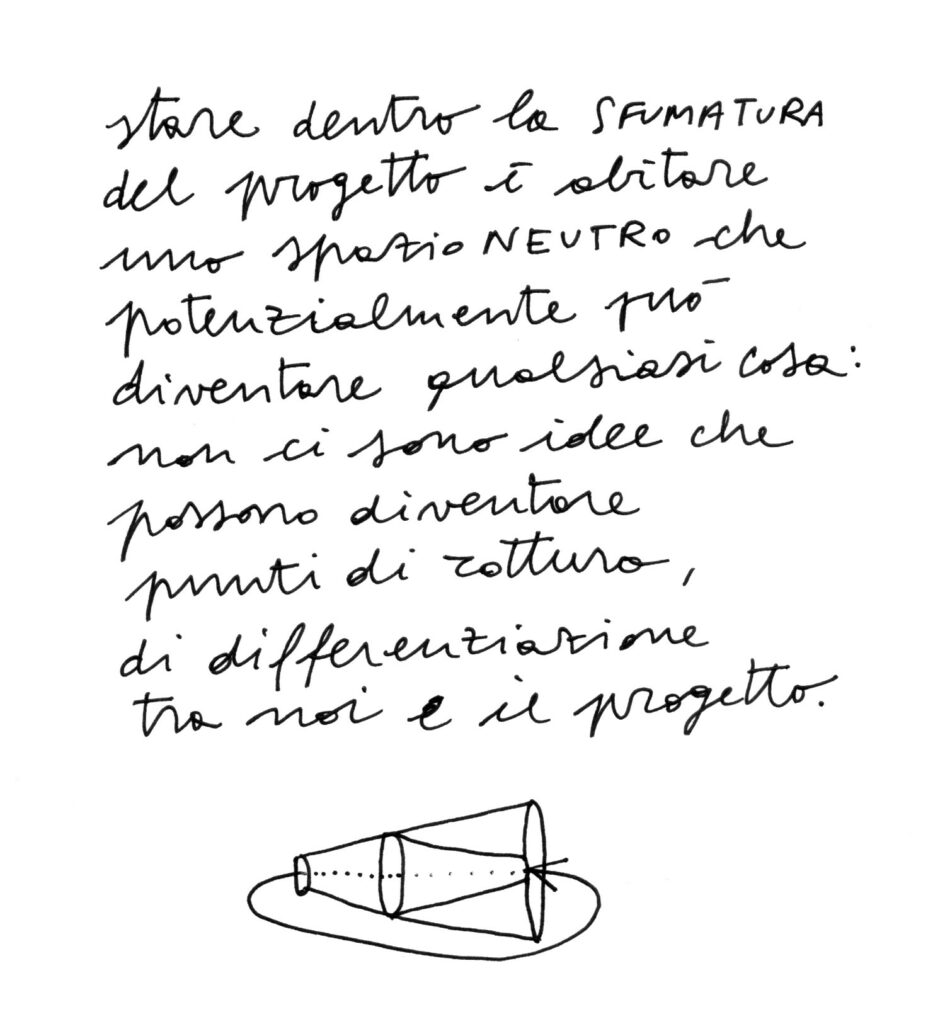 stare dentro la SFUMATURA
del progetto è abitare
uno spazio NEUTRO che
potenzialmente può
diventare qualsiasi cosa:
non ci sono idee che
possono diventare
punti di rottura,
di differenziazione
tra noi e il progetto.